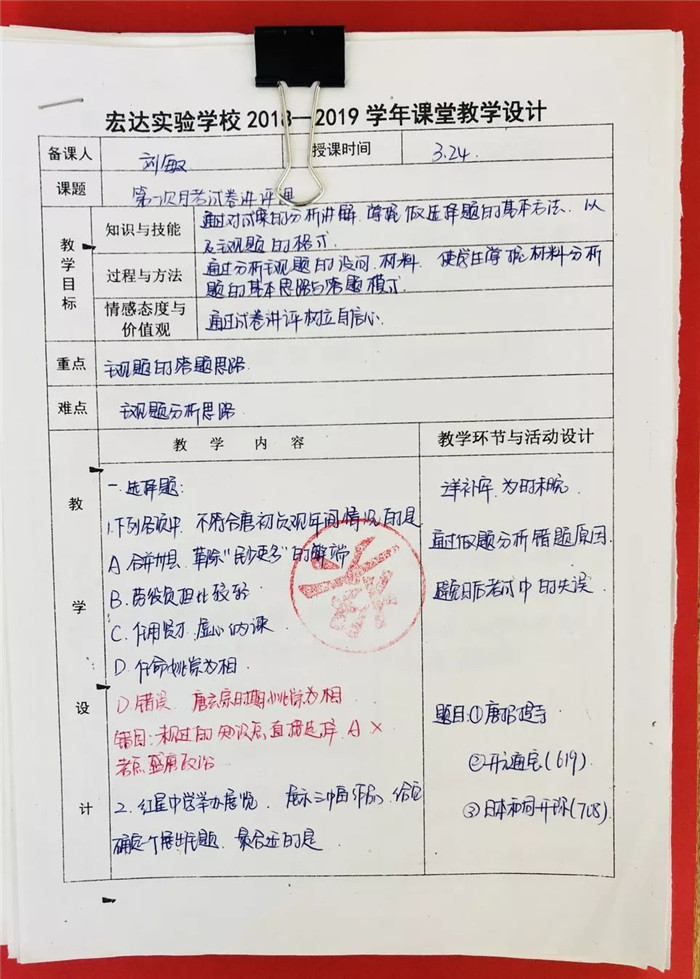 宏达实验学校 2018—2019 学年课堂教学设计
备课人 刘敏 授课时间 3.24.
课题 第一次月考试卷讲评课
教学目标
知识与技能 通过对试卷的分析讲解，掌握做选择题的基本方法．以
及主观题的格式．
过程与方法 通过分析主观题的设问．材料．使学生掌握材料分析
题的基本思路与答题模式．
情感态度与价值观 通过试卷讲评树立自信心．
重点 主观题的答题思路．
难点 主观题分析思路
教学内容 教学环节与活动设计
教学设计
一．选择题：
1.下列各项中．不符合唐初贞观年间情况的是
A．合并州县．革除“民少吏多”的弊端
B．百姓负担比较轻
C．任用贤才．虚心纳谏
D．任命姚崇为相．
D 错误．唐玄宗时期姚崇为相
错因：未掌握的知识点 直接选择．A ×
考点 盛唐政治
2．红星中学举办展览．展示三幅作品．给它
确定一个展出主题．最合适的是
通过做题分析错题原因．
避免日后考试中的失误．
题目：①
②开元通宝(619)．
③日本和同开珎(708)．